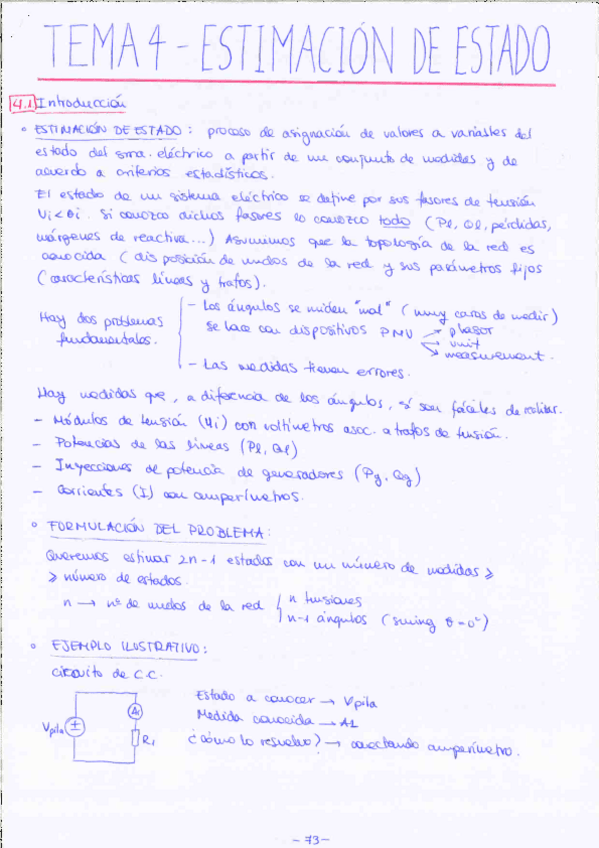 TEMA 4 - ESTIMACIÓN DE ESTADO
4.1 Introducción
◦ ESTIMACIÓN DE ESTADO: proceso de asignación de valores a variables del
estado del sma. eléctrico a partir de un conjunto de medidas y de
acuerdo a criterios estadísticos.
El estado de un sistema eléctrico se define por sus fasores de tensión
Ui<θi. Si conozco dichos fasores lo conozco todo (Pl, Ql, pérdidas,
márgenes de reactiva...) Asumimos que la topología de la red es
conocida (disposición de nudos de la red y sus parámetros fijos
(características líneas y trafos).
Hay dos problemas
fundamentales.
- Los ángulos se miden "mal" (muy caros de medir)
Se hace con dispositivos PMU → phasor
→ unit
→ measurement.
- Las medidas tienen errores.
Hay medidas que, a diferencia de los ángulos, sí son fáciles de realizar.
- Módulos de tensión (Ui) con voltímetros asoc. a trafos de tensión.
- Potencias de las líneas (Pl, Ql)
- Inyecciones de potencia de generadores (Pg, Qg)
- Corrientes (I) con amperímetros.
◦ FORMULACIÓN DEL PROBLEMA:
Queremos estimar 2n-1 estados con un número de medidas ≥
≥ número de estados.
n → nº de nudos de la red { n tensiones
n-1 ángulos (swing θ=0°)
◦ EJEMPLO ILUSTRATIVO:
Circuito de C.C.
Vpila
A1
R1
Estado a conocer → Vpila
Medida conocida → A1
¿cómo lo resuelvo? → conectando amperímetro.
- 73 -